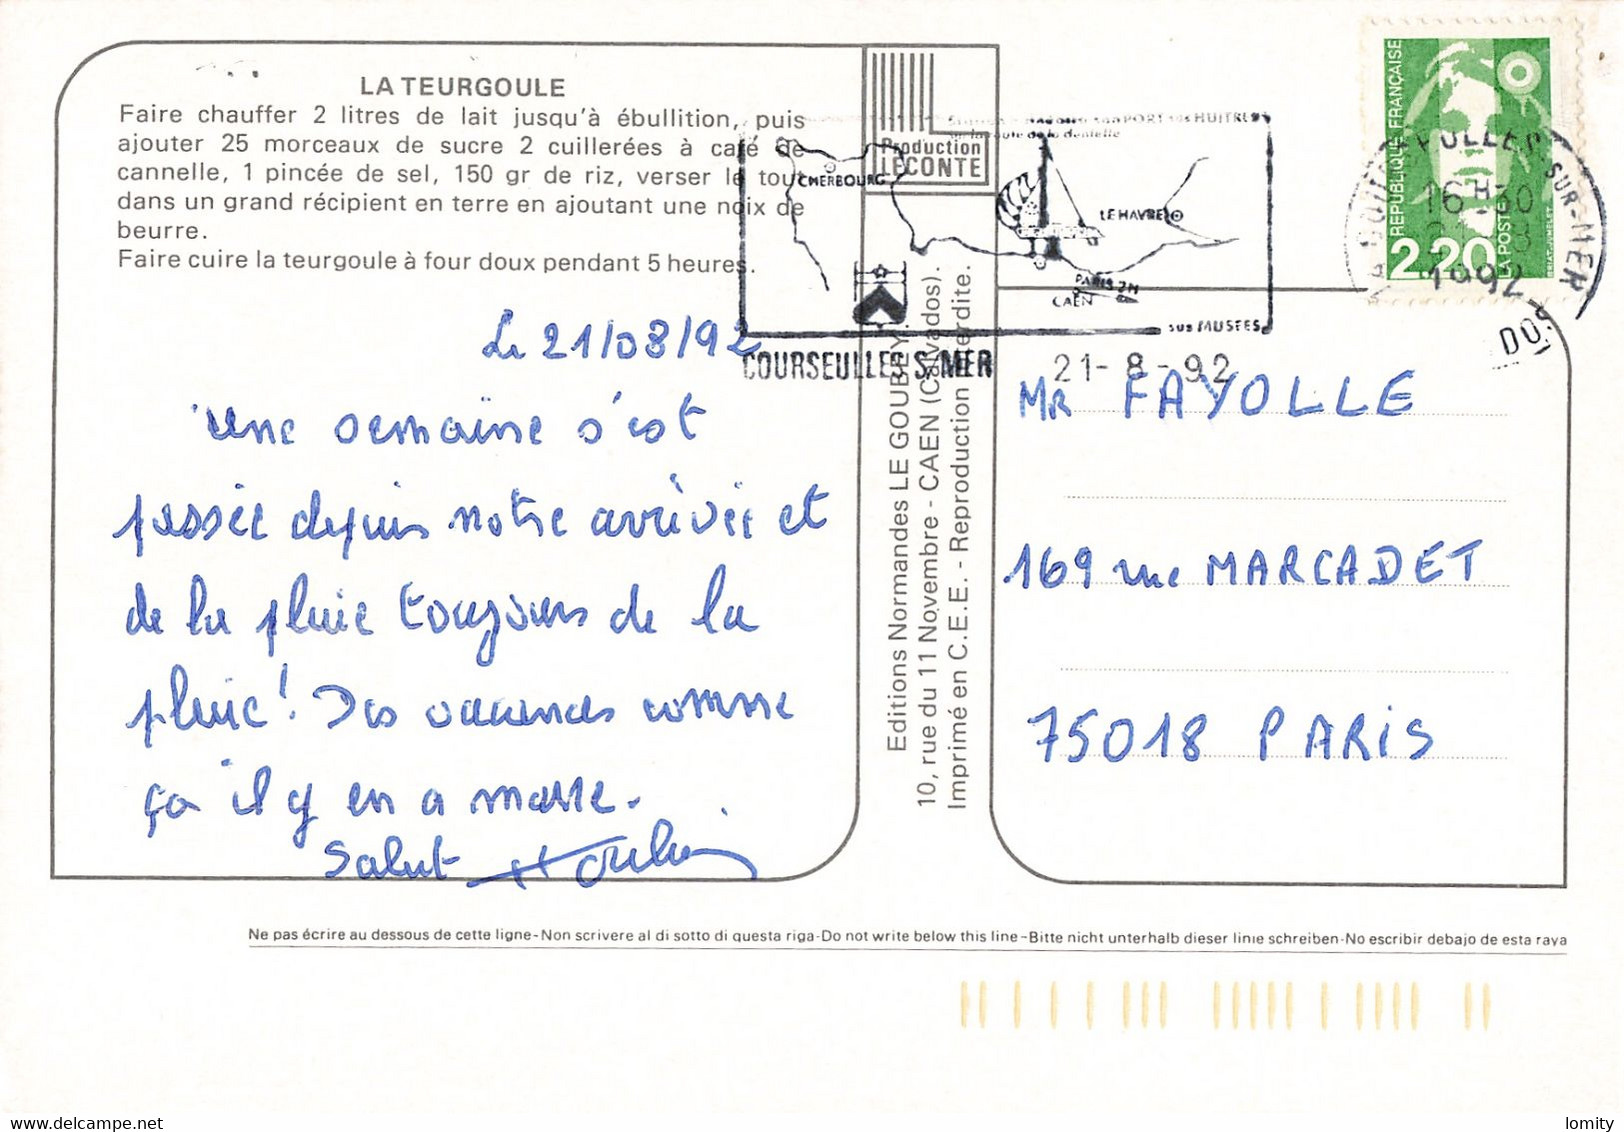 LA TEURGOULE
Faire chauffer 2 litres de lait jusqu'à ébullition, puis
ajouter 25 morceaux de sucre 2 cuillerées à café de
cannelle, 1 pincée de sel, 150 gr de riz, verser le tout
dans un grand récipient en terre en ajoutant une noix de
beurre.
Faire cuire la teurgoule à four doux pendant 5 heures.
Le 21/08/92
Une semaine s'est
passée depuis notre arrivée et
de la pluie toujours de la
pluie! Des vacances comme
ça il y en a marre.
Salut
Production
LECONTE
PORT HUITRES
de la dentelle
CHERBOURG
LE HAVRE
PARIS 2H
CAEN
SES MUSEES
COURSEULLES S/MER
21-8-92
Editions Normandes LE GOUBEY.
10, rue du 11 Novembre - CAEN (Calvados).
Imprimé en C.E.E. - Reproduction interdite.
REPUBLIQUE FRANÇAISE
2,20
LA POSTE
SUR-MER
16H30
1992
MR FAYOLLE
169 rue MARCADET
75018 PARIS
Ne pas écrire au dessous de cette ligne-Non scrivere al di sotto di questa riga-Do not write below this line-Bitte nicht unterhalb dieser linie schreiben-No escribir debajo de esta raya
delcampe.net
lomity